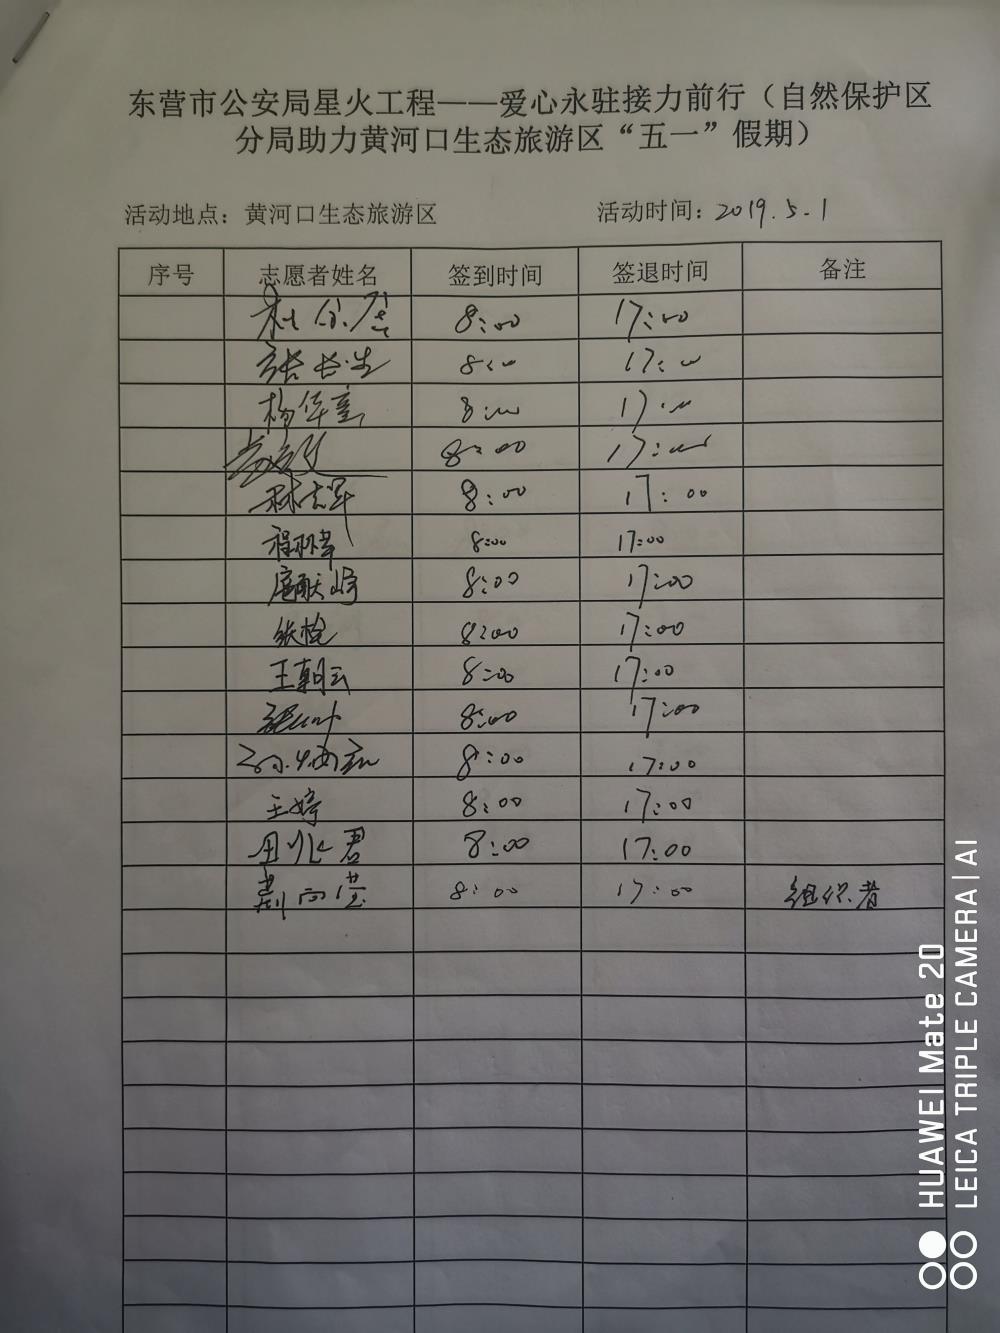 东营市公安局星火工程——爱心永驻接力前行（自然保护区
分局助力黄河口生态旅游区“五一”假期）
活动地点：黄河口生态旅游区 活动时间：2019.5.1
序号 志愿者姓名 签到时间 签退时间 备注
8:00 17:00
张长生 8:00 17:00
杨华童 8:00 17:00
8:00 17:00
林志军 8:00 17:00
程丽华 8:00 17:00
8:00 17:00
张栓 8:00 17:00
王朝云 8:00 17:00
8:00 17:00
8:00 17:00
王婷 8:00 17:00
田兆君 8:00 17:00
8:00 17:00 组织者
HUAWEI Mate 20
LEICA TRIPLE CAMERA | AI